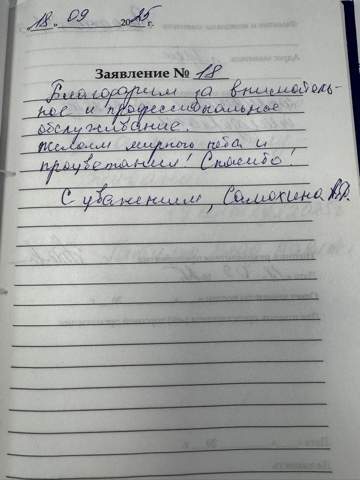 18. 09 2025 г.
Заявление № 18
Благодарим за вниматель-
ное и профессиональное
обслуживание.
Желаем мирного неба и
процветания! Спасибо!
С уважением, Самохина